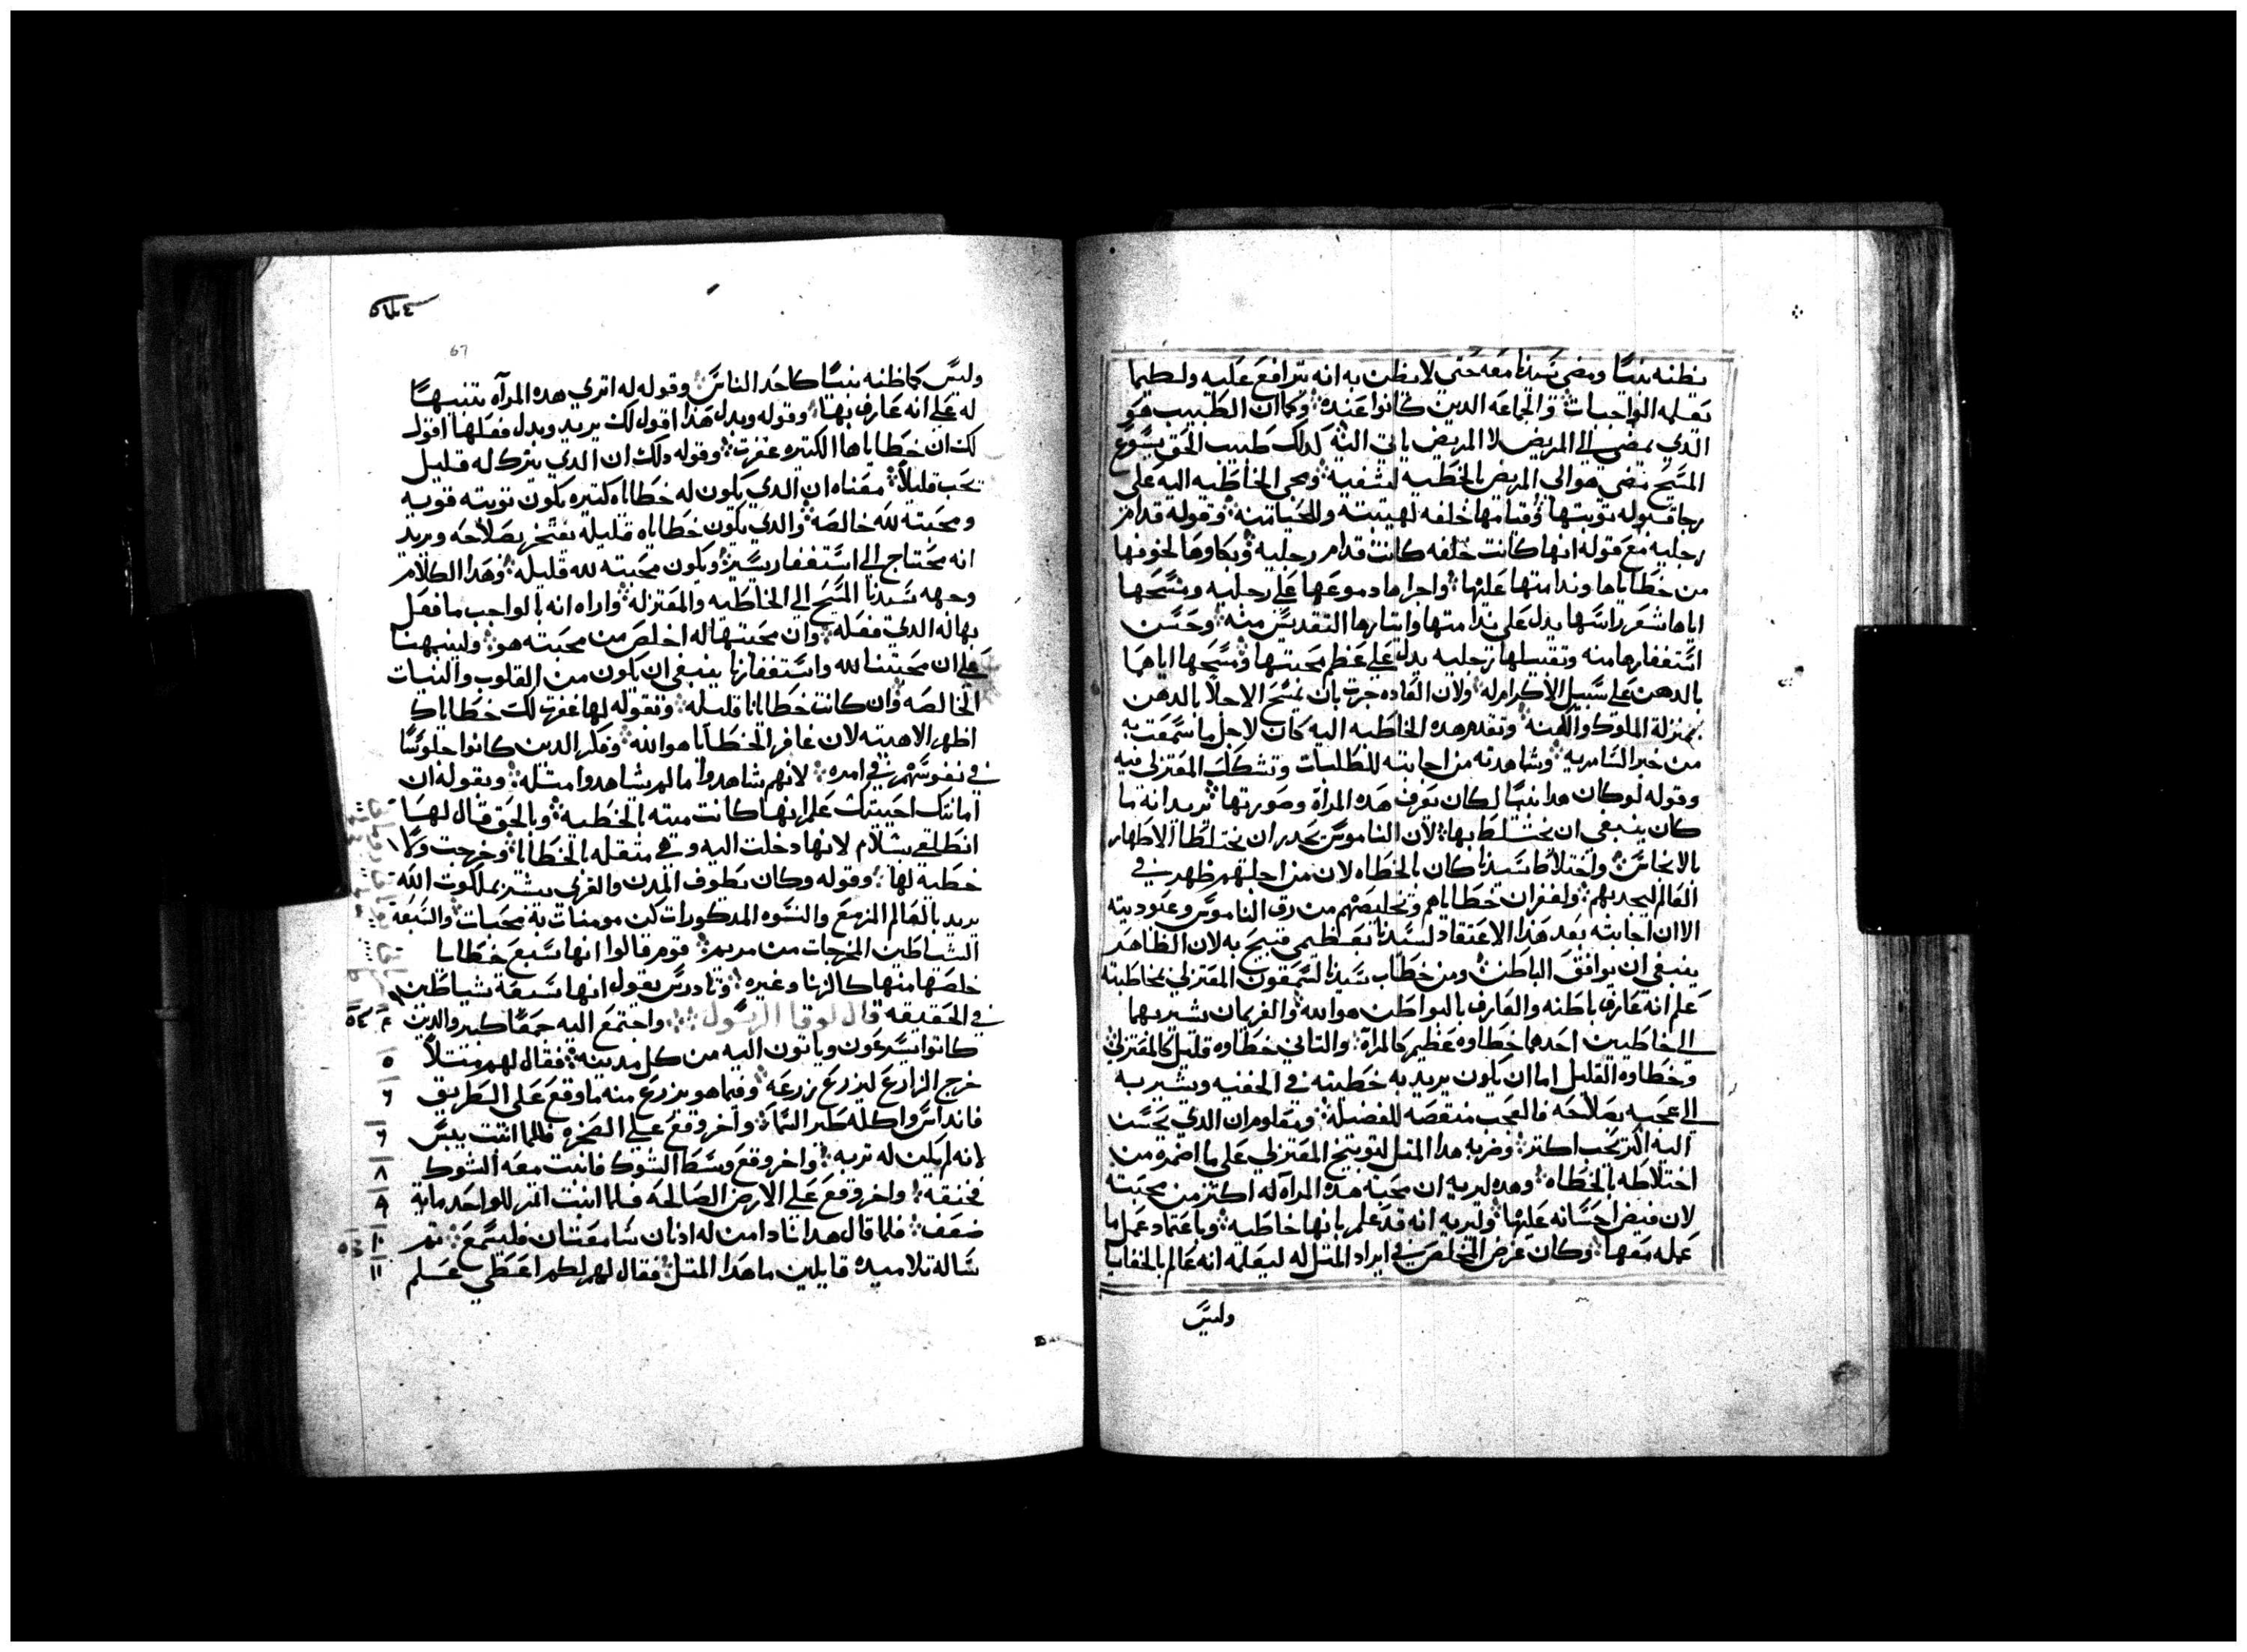 يظنه نبيًا ومضي سيدنا معه حتي لا يظن به انه يترافع عليه ولطيما
تعلمه الواجبات والجماعه الدين كانوا عنده وكما ان الطبيب هو
الدي يمضي الي المريض لا المريض ياتي اليه كدلك طبيب الحق يسوع
المسيح مضي هو الي المريض بالخطيه ليشفيه ومجي الخاطيه اليه علي
رجا قبوله توبتها وقيامها خلفه لهيبته وللحيا منه وقوله قدام
رجليه مع قوله انها كانت خلفه كانت قدام رجليه وبكاوها لخوفها
من خطاياها وندامتها عليها واجراها دموعها علي رجليه ومسحها
اياها شعر راسها يدل علي ندامتها وايتارها التقديس منه وحسن
استغفارها منه وتقبيلها رجليه يدل علي عظم محبتها ومسحها اياهما
بالدهن علي سبيل الاكرام له ولان العاده جرت بان يمسح الاجلا بالدهن
بمنزلة الملوك والكهنه وتقدم هده الخاطيه اليه كان لاجل ما سمعت به
من خبر السامريه وشاهدته من اجابته للطلبات وتشكك المعتزلي فيه
وقوله لو كان هدا نبيًا لكان يعرف هده المراة وصورتها يريد انه ما
كان ينبغي ان يختلط بها لان الناموس يحدر ان يختلطا الاطهار
بالانجاس واختلاط سيدنا كان بالخطاه لان من اجلهم ظهر في
العالم ليجدبهم ولغفران خطاياهم وتخليصهم من رق الناموس وعبوديته
الا ان اجابته بعد هدا الاعتقاد لسيدنا بعظيمي قبيح به لان الظاهر
ينبغي ان يوافق الباطن ومن خطاب سيدنا لسمعون المعتزلي بمخاطبته
علم انه عارف باطنه والعارف بالبواطن هو الله والغريمان يشير بهما
الي الخاطيين احدهما خطاوه عظيم كالمراة والتاني خطاوه قليل كالمعتزلي
وخطاوه القليل اما ان يكون يريد به خطيته في الخفيه ويشير به
الي عجبه بصلاحه فالعجب منقصه للفضيله ومعلوم ان الدي يحسن
اليه اكتر يحب اكتر وضربه هدا المتل لتوبيخ المعتزلي علي ما اضمره من
اختلاطه بالخطاه وهده ليريه ان محبة هده المراه له اكتر من محبته
لان فيض احسانه عليها وليريه انه قد علم بانها خاطيه وباعتماد عمل ما
عمله معها وكان غرض المخلص في ايراد المتل له ليعلمه انه عالم بالخفايا
وليس
67
وليس كما ظنه نبيًا كاحد الناس وقوله له اتري هده المرآه تنبيهًا
له علي انه عارف بها وقوله وبدل هدا اقول لك يريد وبدل فعلها اقول
لك ان خطاياها الكتيره غفرت وقوله دلك ان الدي يترك له قليل
يحب قليلاً معناه ان الدي يكون له خطاياه كتيره يكون توبته قويه
ومحبته لله خالصه والدي يكون خطاياه قليله يفتخر بصلاحه ويريد
انه محتاج الي استغفار يسير ويكون محبته لله قليله وهدا الكلام
وجهه سيدنا المسيح الي الخاطيه والمعتزله واراه انه بالواجب ما فعل
بها له الدي فعله وان محبتها له اخلص من محبته هو ولينبهنا
علي ان محبتنا لله واستغفارنا ينبغي ان يكون من القلوب والنيات
الخالصه وان كانت خطايانا قليله وبقوله لها غفرت لك خطاياك
اظهر الاهيته لان غافر الخطايا هو الله وفكر الدين كانوا جلوسًا
في نفوسهم في امره لانهم شاهدوا ما لم يشاهدوا متله وبقوله ان
امانتك احيتك علم انها كانت ميته بالخطيه وبالحق قال لها
انطلقي بسلام لانها دخلت اليه وهي متقله بالخطايا وخرجت ولا
خطيه لها وقوله وكان يطوف المدن والقري يبشر بملكوت الله
يريد بالعالم المزمع والنسوه المدكورات كن مومنات به محبات والسبعه
الشياطين المخرجات من مريم قوم قالوا انها سبع خطايا
خلصها منها كالزنا وغيره وتادرس يقول انها سبعة شياطين
في الحقيقه قال لوقا الرسول واجتمع اليه جمعًا كبير والدين ٤
كانوا يسرعون وياتون اليه من كل مدينه فقال لهم متلاً ٥
خرج الزارع ليزرع زرعه وفيما هو يزرع منه ما وقع علي الطريق
فانداس واكله طير السما واخر وقع علي الصخره فلما انبت يبس ٦
لانه لم يكن له تربه واخر وقع وسط الشوك فانبت معه الشوك
فخنقه واخر وقع علي الارض الصالحه فلما انبت اتمر للواحد مايه ٨
ضعف فلما قال هدا نادا من له ادنان سامعتان فليسمع تم ١٠
ساله تلاميده قايلين ما هدا المتل فقال لهم لكم اعطي علم ١١